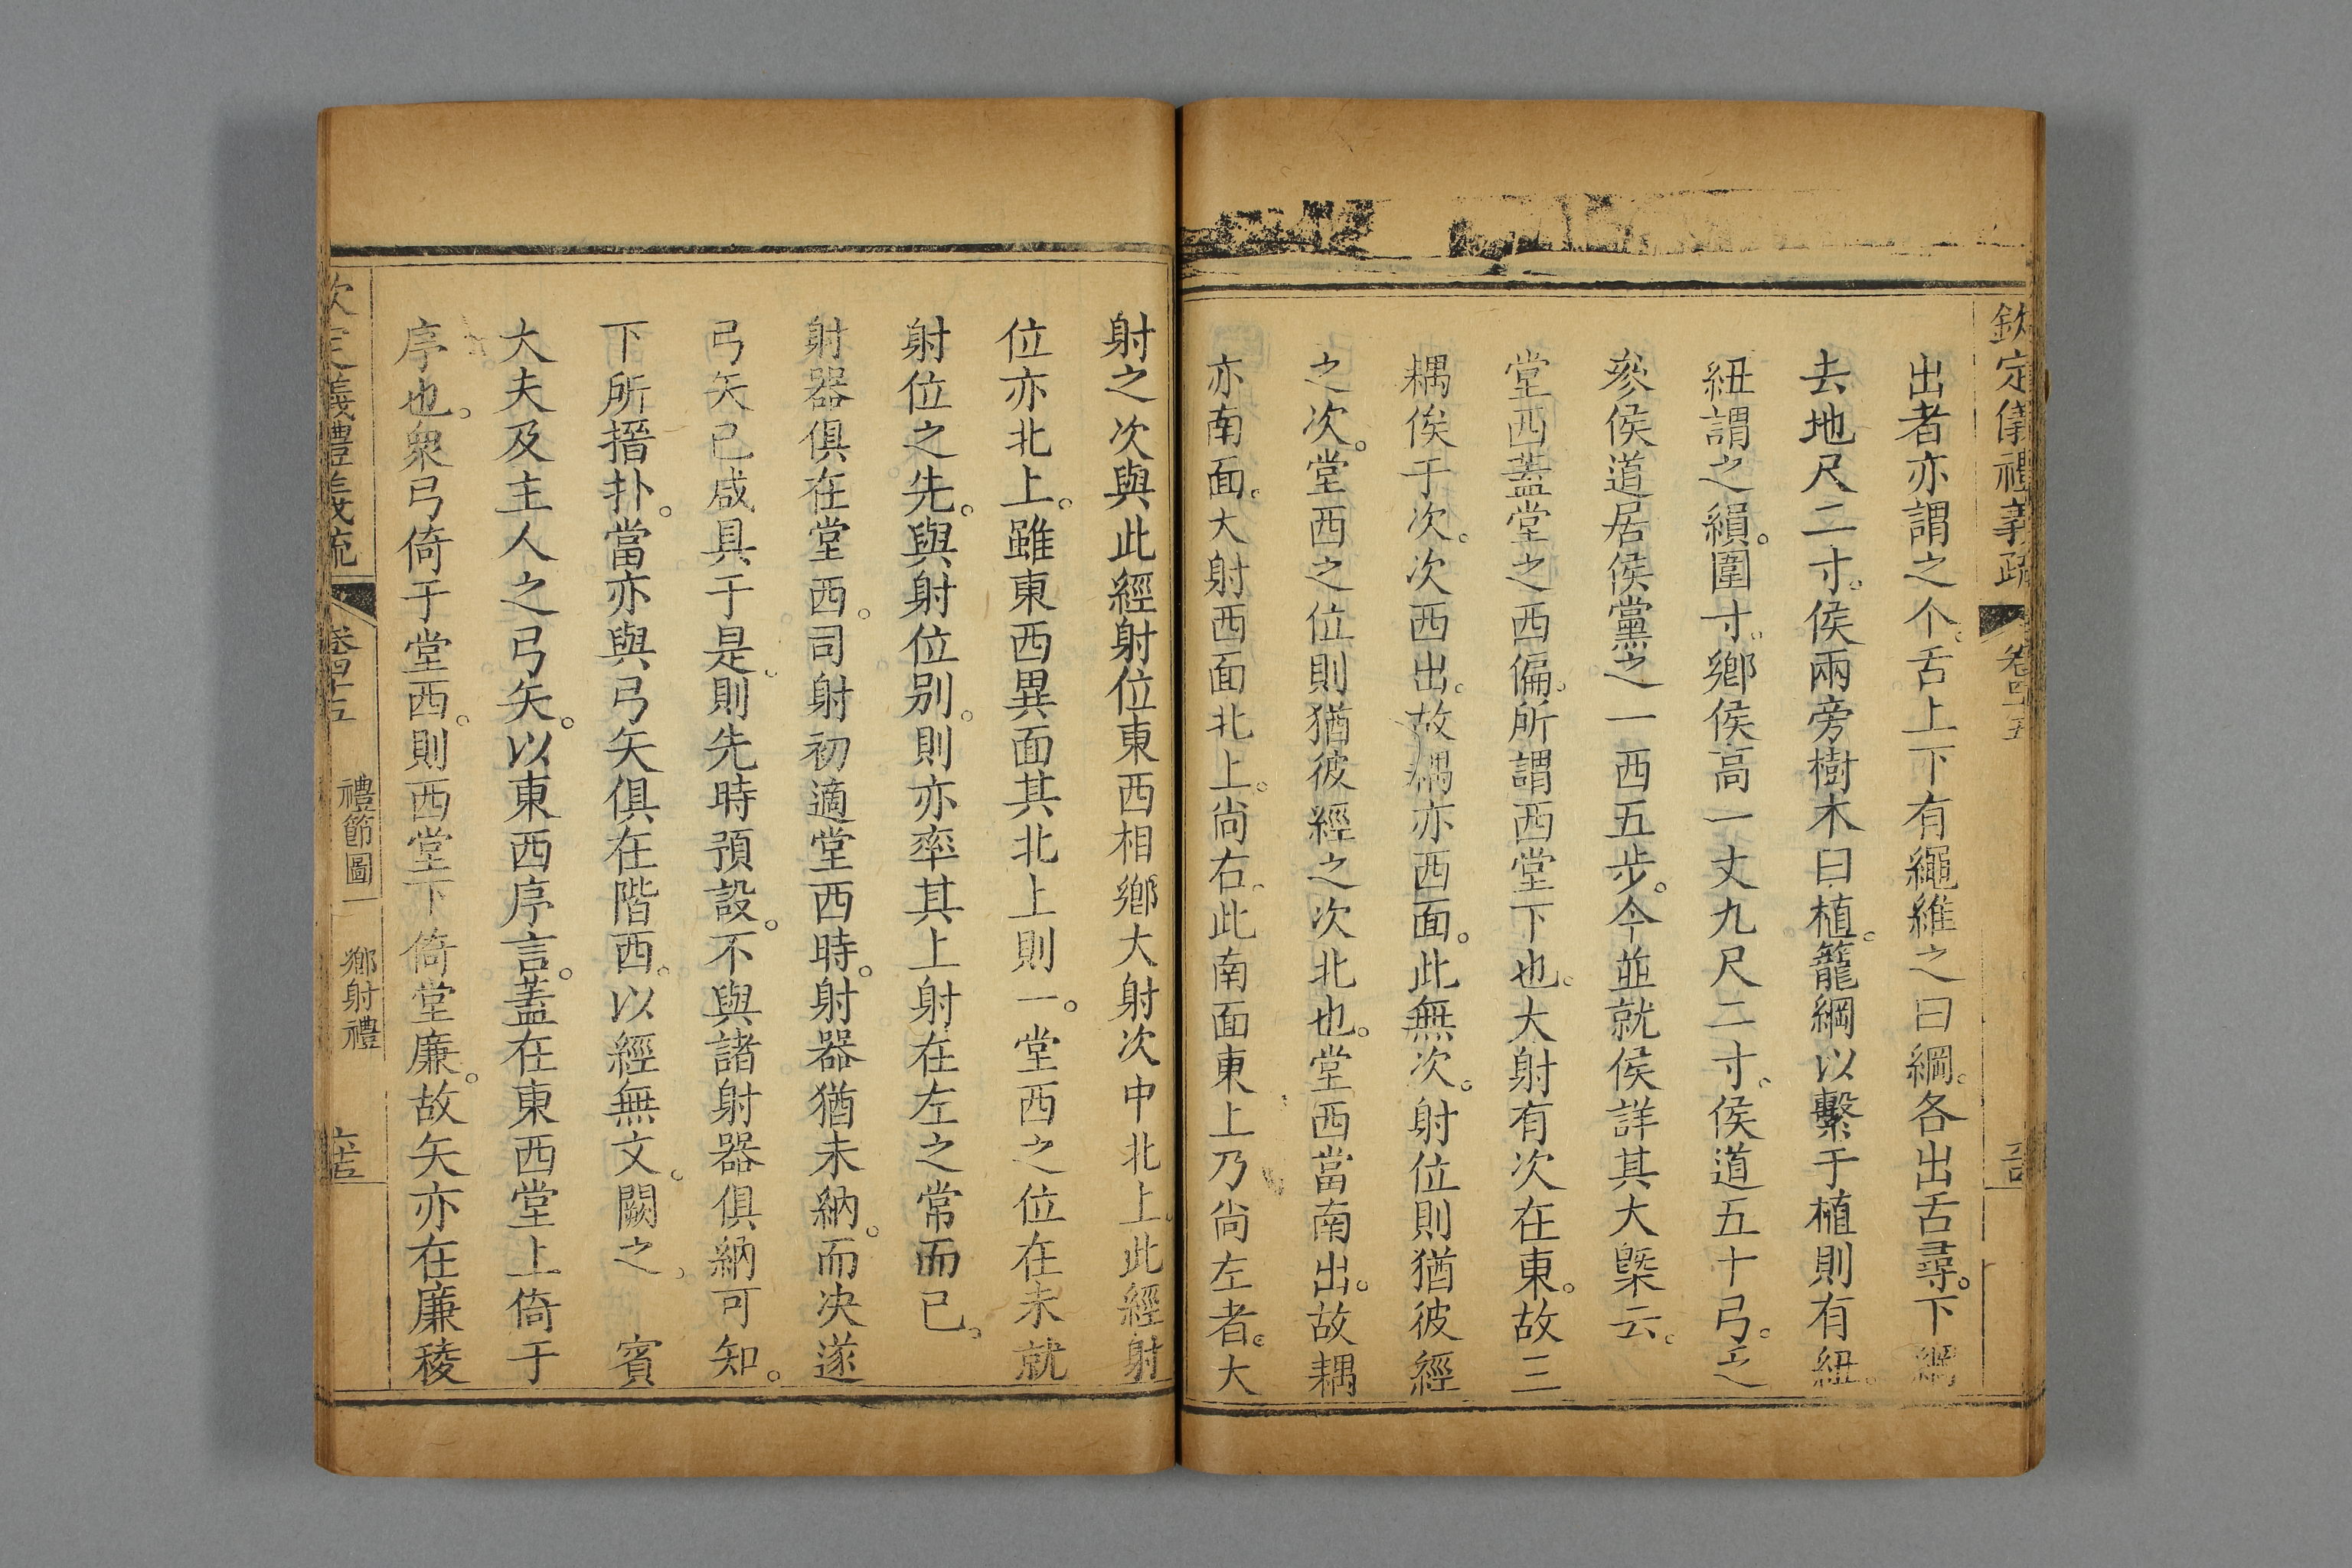 欽定儀禮義疏 卷四十五
出者亦謂之个。舌上下有繩維之曰綱。各出舌尋。下綱
去地尺二寸。侯兩旁樹木曰植。籠綱以繫于植則有紐。
紐謂之縜。圍寸。鄉侯高一丈九尺二寸。侯道五十弓。乏
參侯道居侯黨之一西五步。今並就侯詳其大槩云。
堂西蓋堂之西偏。所謂西堂下也。大射有次在東。故三
耦俟于次。次西出。故耦亦西面。此無次。射位則猶彼經
之次。堂西之位則猶彼經之次北也。堂西當南出。故耦
亦南面。大射西面北上。尚右。此南面東上乃尚左者。大
射之次與此經射位東西相鄉大射次中北上。此經射
位亦北上。雖東西異面其北上則一。堂西之位在未就
射位之先。與射位别。則亦率其上射在左之常而已。
射器俱在堂西。司射初適堂西時。射器猶未納。而決遂
弓矢已咸具于是。則先時預設。不與諸射器俱納可知。
下所搢扑。當亦與弓矢俱在階西。以經無文。闕之。 賓
大夫及主人之弓矢。以東西序言。蓋在東西堂上倚于
序也。衆弓倚于堂西。則西堂下倚堂廉。故矢亦在廉稜
欽定儀禮義疏 卷四十五 禮節圖一 鄉射禮